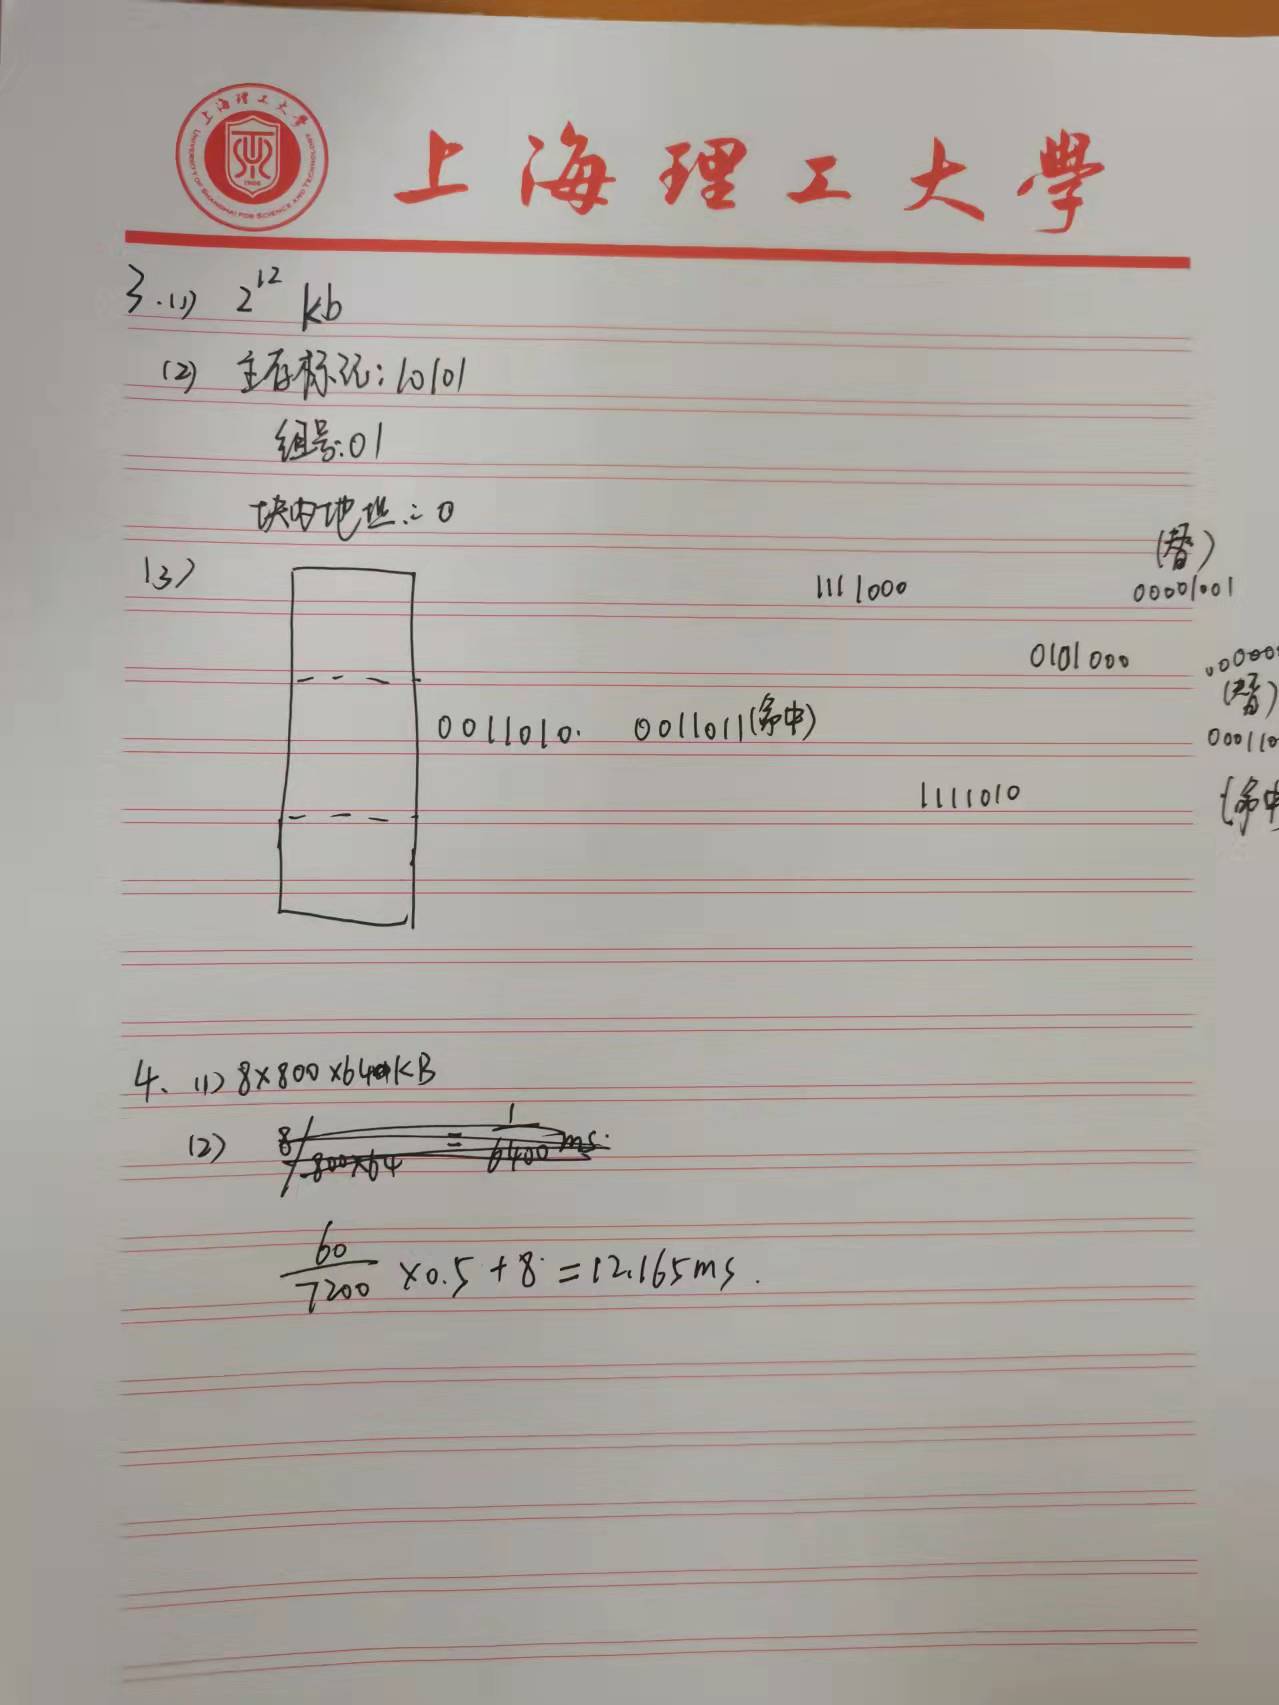 上海理工大学
UNIVERSITY OF SHANGHAI FOR SCIENCE AND TECHNOLOGY
1906
上海理工大學
3.(1) 2^12 kb
(2) 主存标记:10101
组号:01
块内地址:0
(3)
(替)
1111000 00001001
0101000
(替)
0011010. 0011011(命中)
1111010
4. (1) 8×800×64KB
(2) 8/800×64 = 1/6400 ms.
60/7200 ×0.5 + 8 = 12.165ms.